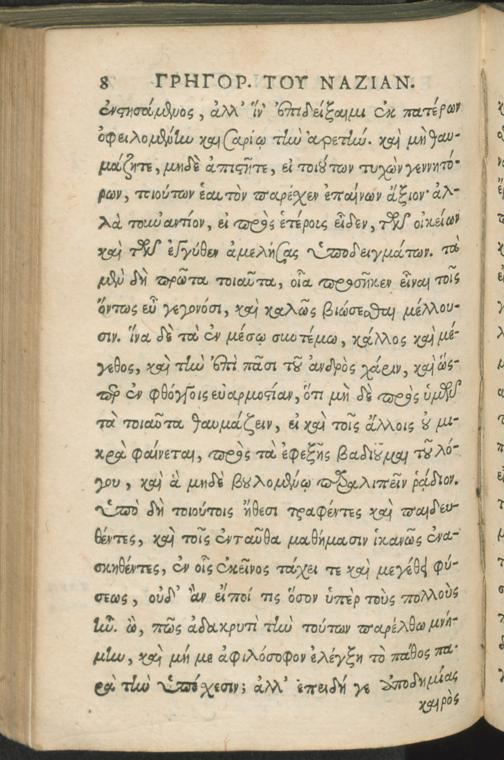 8 ΓΡΗΓΟΡ. ΤΟΥ ΝΑΖΙΑΝ.
ἐνστησάμενος, ἀλλ' ἵν' ἐπιδείξαιμι ἐκ πατέρων
ὀφειλομένην καισαρίῳ τὴν ἀρετήν. καὶ μὴ θαυ-
μάζητε, μηδὲ ἀπιστῆτε, εἰ τοιούτων τυχὼν γεννητό-
ρων, τοιούτων ἑαυτὸν παρέχεν ἐπαίνων ἄξιον· ἀλ-
λὰ τοὐναντίον, εἰ πρὸς ἑτέροις εἶδεν, τῶν οἰκείων
καὶ τῶν ἐγγύθεν ἀμελήσας ὑποδειγμάτων. τὰ
μὲν δὴ πρῶτα τοιαῦτα, οἷα προσῆκεν εἶναι τοῖς
ὄντως εὖ γεγονόσι, καὶ καλῶς βιώσεσθαι μέλλου-
σιν. ἵνα δὲ τὰ ἐν μέσῳ συντέμω, κάλλος καὶ μέ-
γεθος, καὶ τὴν ἐπὶ πᾶσι τοῦ ἀνδρὸς χάριν, καὶ ὥς-
περ ἐν φθόγγοις εὐαρμοστίαν, ὅτι μὴ δὲ πρὸς ἡμῶν
τὰ τοιαῦτα θαυμάζειν, εἰ καὶ τοῖς ἄλλοις οὐ μι-
κρὰ φαίνεται, πρὸς τὰ ἐφεξῆς βαδιοῦμαι τοῦ λό-
γου, καὶ ἃ μηδὲ βουλομένῳ παραλιπεῖν ῥᾴδιον.
Ὑπὸ δὴ τοιούτοις ἤθεσι τραφέντες καὶ παιδευ-
θέντες, καὶ τοῖς ἐνταῦθα μαθήμασιν ἱκανῶς ἐνα-
σκηθέντες, ἐν οἷς ἐκεῖνος τάχει τε καὶ μεγέθει φύ-
σεως, οὐδ' ἂν εἴποί τις ὅσον ὑπὲρ τοὺς πολλοὺς
ἦν. ὢ, πῶς ἀδακρυτὶ τὴν τούτων παρέλθω μνή-
μην, καὶ μή με ἀφιλόσοφον ἐλέγξῃ τὸ πάθος πα-
ρὰ τὴν ὑπόχεσιν; ἀλλ' ἐπειδή γε ἀποδημίας
καιρὸς